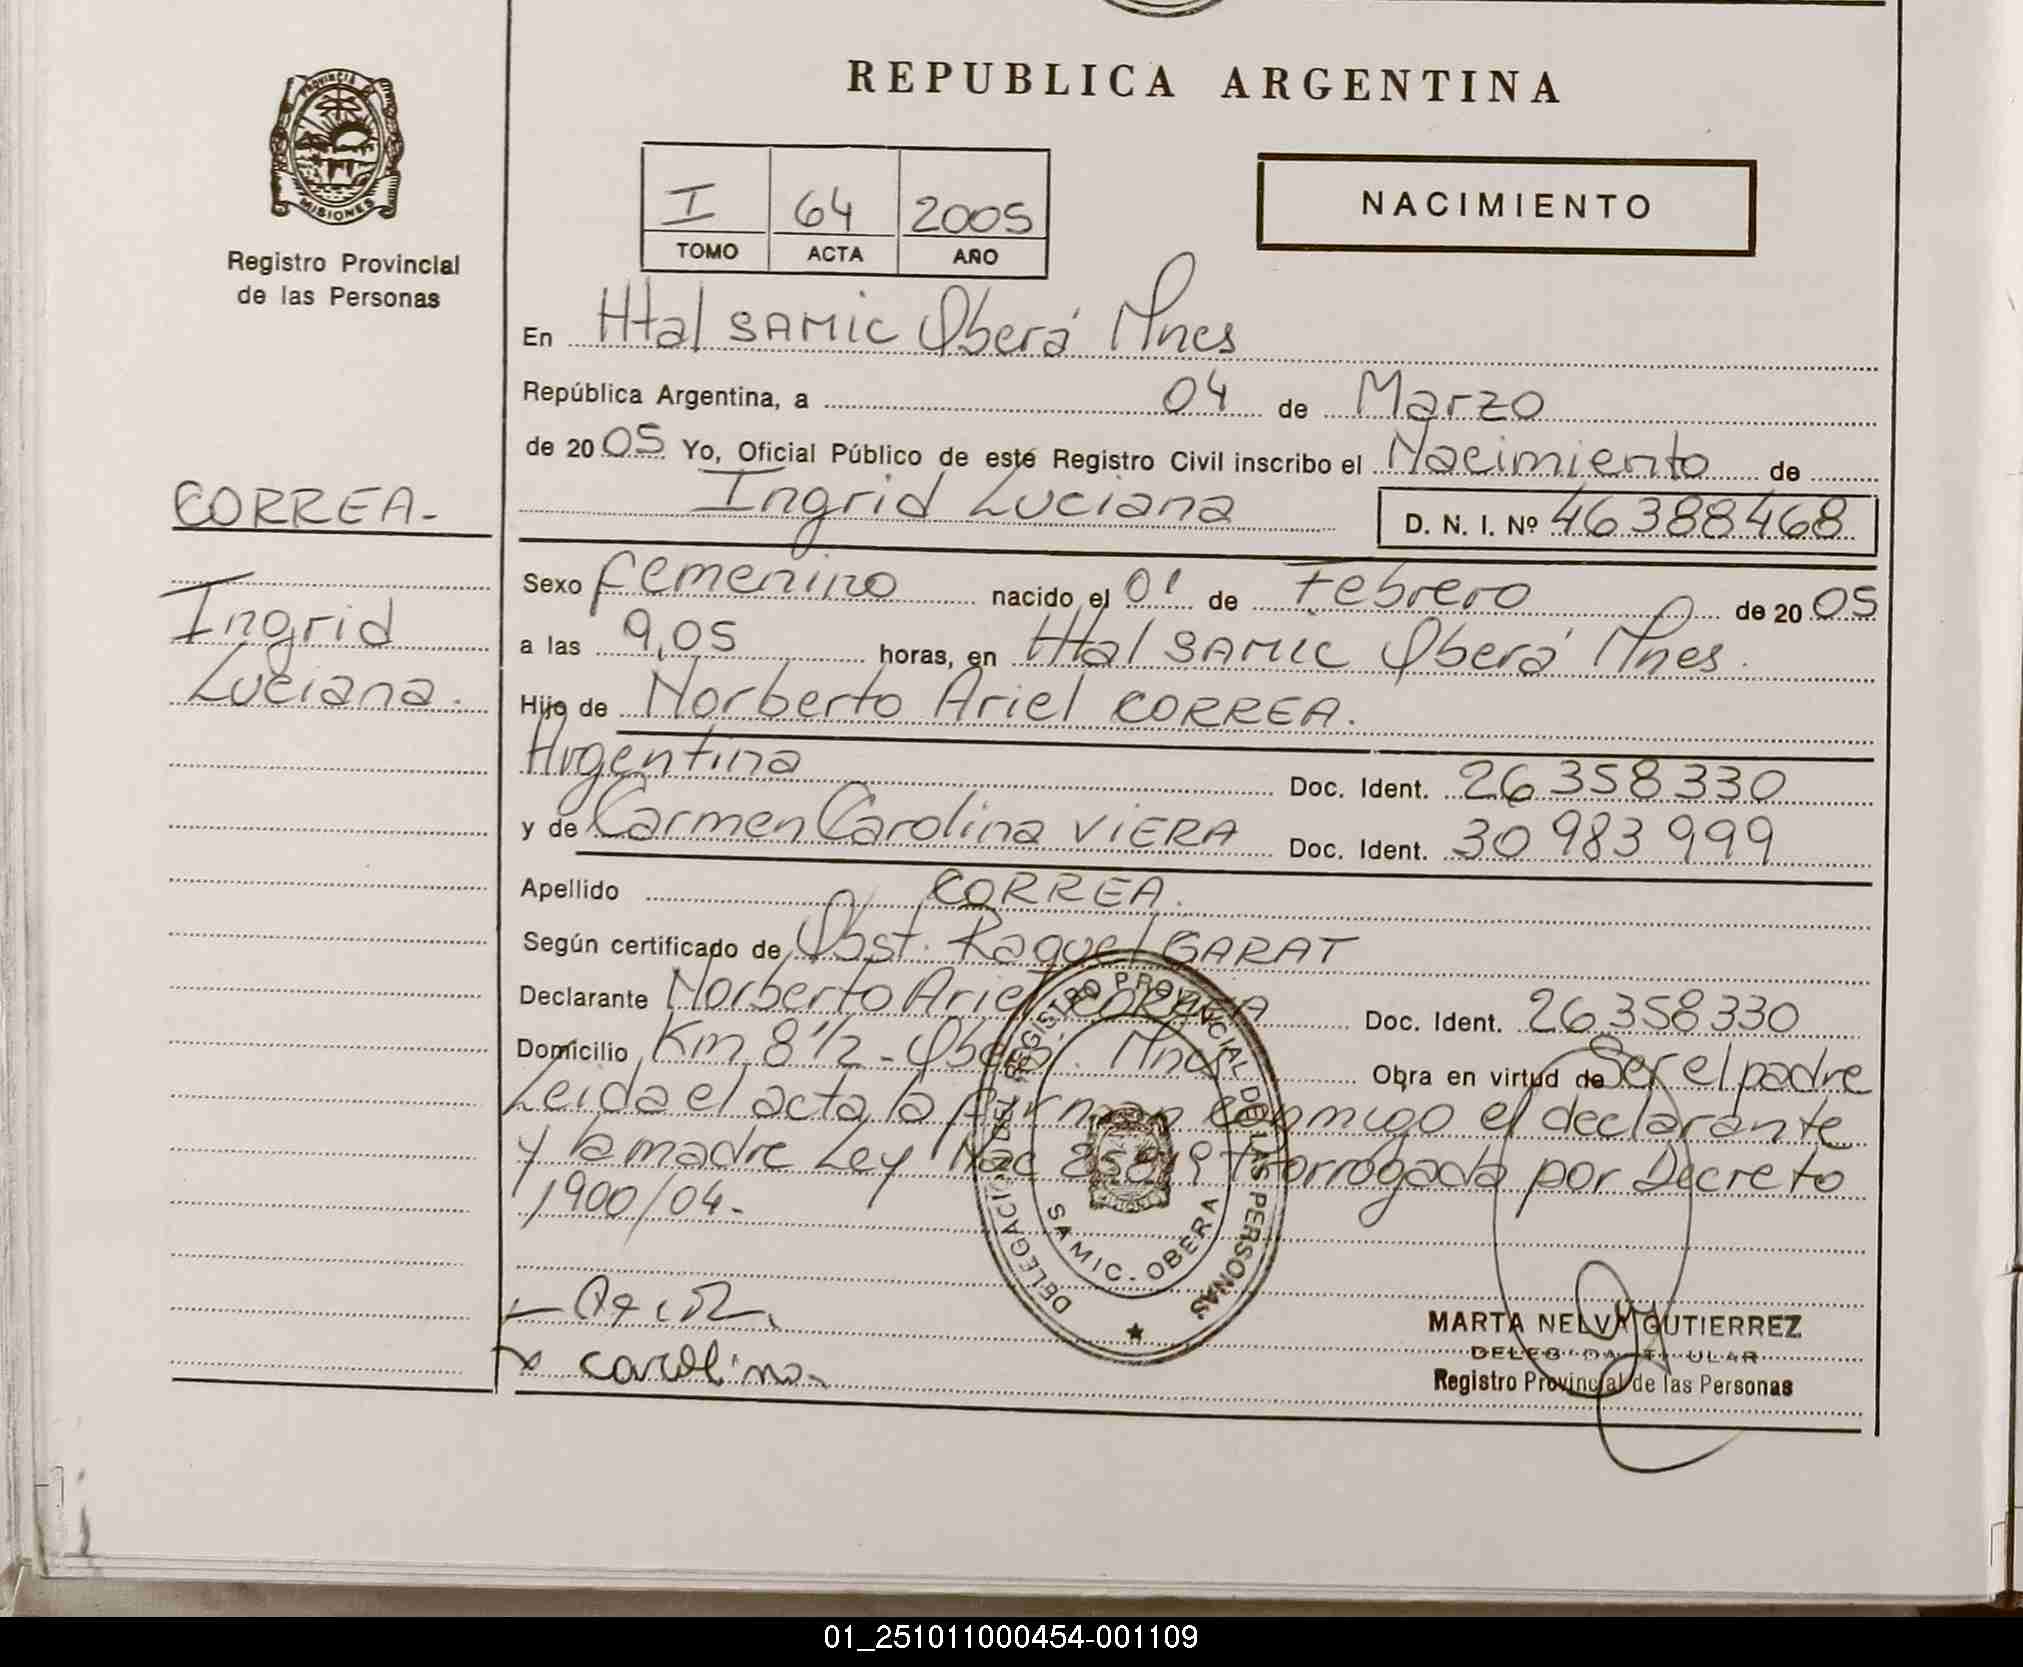 REPUBLICA ARGENTINA
PROVINCIA
MISIONES
Registro Provincial
de las Personas
I 64 2005
TOMO ACTA AÑO
NACIMIENTO
En Htal SAMIC Oberá Mnes
República Argentina, a 04 de Marzo
de 20 05 Yo, Oficial Público de este Registro Civil inscribo el Nacimiento de
Ingrid Luciana D. N. I. Nº 46388468
CORREA-
Ingrid
Luciana.
Sexo femenino nacido el 01 de Febrero de 20 05
a las 9,05 horas, en Htal SAMIC Oberá Mnes.
Hijo de Norberto Ariel CORREA.
Argentina Doc. Ident. 26 358 330
y de Carmen Carolina VIERA Doc. Ident. 30 983 999
Apellido CORREA.
Según certificado de Obst. Raquel GARAT
Declarante Norberto Ariel CORREA Doc. Ident. 26 358 330
Domicilio Km 8 1/2 - Oberá. Mnes Obra en virtud de Ser el padre
Leida el acta la firman conmigo el declarante
y la madre Ley Nac 25819 Prorrogada por Decreto
1900/04-
DELEGACION DEL REGISTRO PROVINCIAL DE LAS PERSONAS
SAMIC - OBERA
carolina
MARTA NELVA GUTIERREZ
DELEGADA TITULAR
Registro Provincial de las Personas
01_251011000454-001109